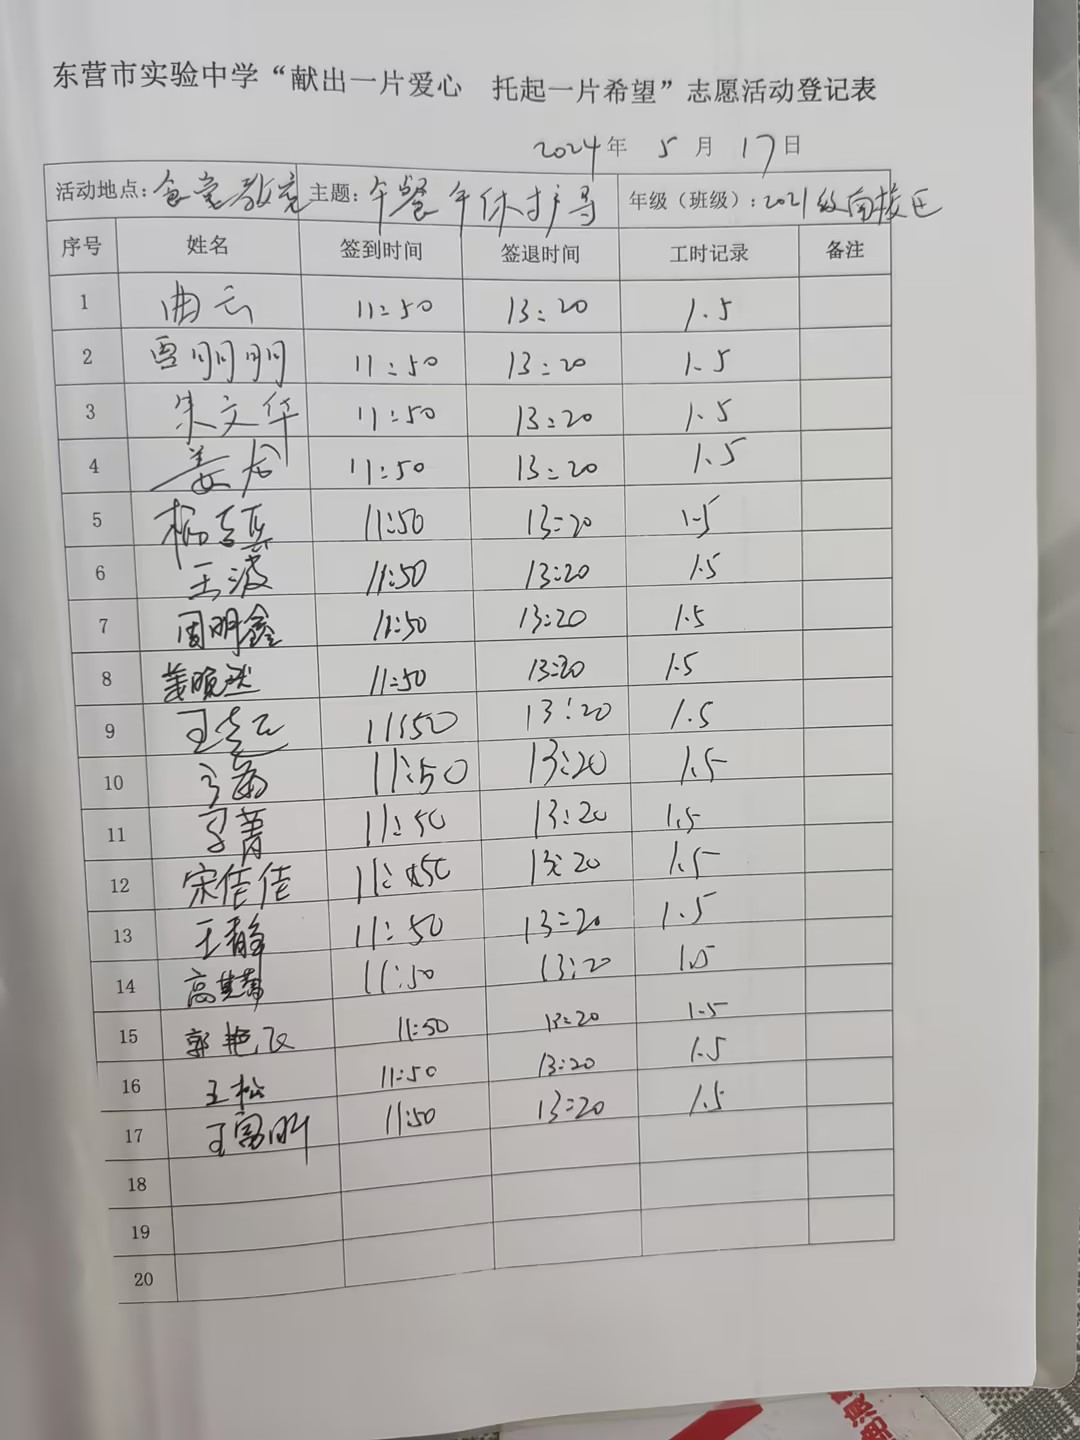 东营市实验中学“献出一片爱心 托起一片希望”志愿活动登记表
2024年 5月 17日
活动地点：食堂教室 主题：午餐午休护导 年级（班级）：2021级南校区
序号 姓名 签到时间 签退时间 工时记录 备注
1 曲云 11:50 13:20 1.5
2 贾明明 11:50 13:20 1.5
3 朱文华 11:50 13:20 1.5
4 姜 11:50 13:20 1.5
5 杨 11:50 13:20 1.5
6 王波 11:50 13:20 1.5
7 周明鑫 11:50 13:20 1.5
8 姜晓 11:50 13:20 1.5
9 王 11:50 13:20 1.5
10 11:50 13:20 1.5
11 菁 11:50 13:20 1.5
12 宋佳佳 11:50 13:20 1.5
13 王静 11:50 13:20 1.5
14 高 11:50 13:20 1.5
15 郭艳飞 11:50 13:20 1.5
16 王松 11:50 13:20 1.5
17 王富明 11:50 13:20 1.5
18
19
20